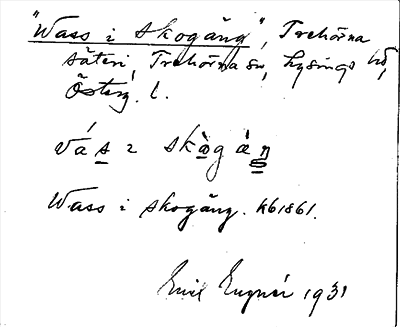 "Wass i skogäng", Trehörna
säteri, Trehörna sn, Lysings hd,
Österg. l.
vás ɩ skògàŋ
Wass i skogäng. kb1861.
Emil Eugnér 1931